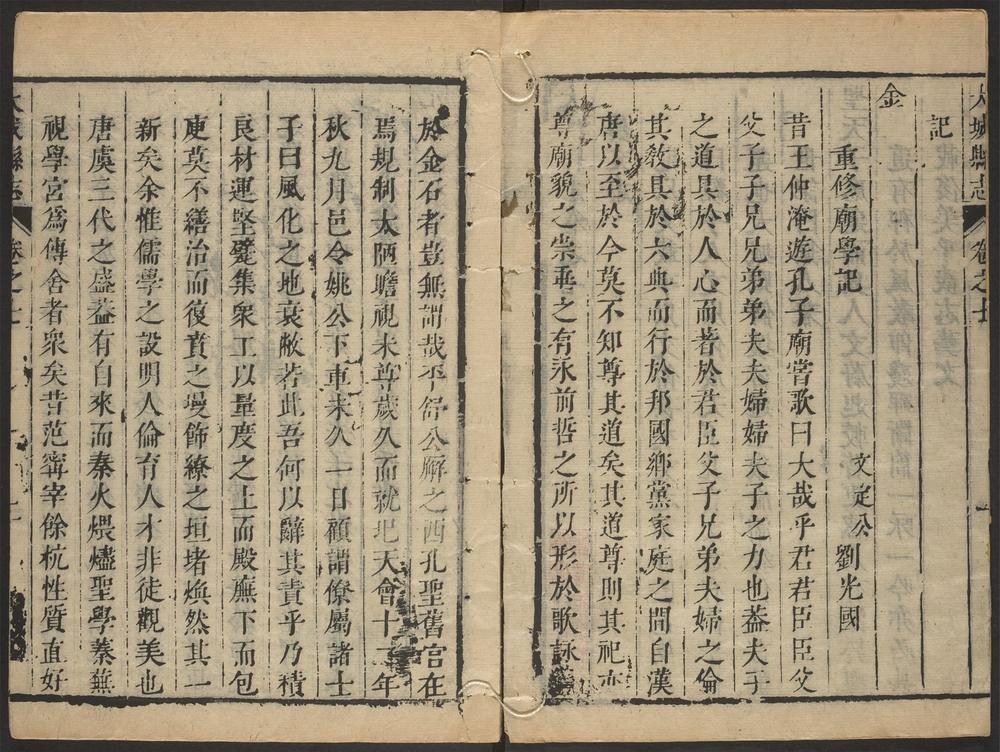 大城縣志 卷之七
記
金
重修廟學記 文定公 劉光國
昔王仲淹遊孔子廟嘗歌曰大哉乎君君臣臣父
父子子兄兄弟弟夫夫婦婦夫子之力也葢夫子
之道具於人心而著於君臣父子兄弟夫婦之倫
其教具於六典而行於邦國鄉黨家庭之間自漢
唐以至於今莫不知尊其道矣其道尊則其祀亦
尊廟貌之崇垂之有永前哲之所以形於歌詠
於金石者豈無謂哉平舒公廨之西孔聖舊宮在
焉規制太陋瞻視未尊歲久而就圮天會十二年
秋九月邑令姚公下車未久一日顧謂僚屬諸士
子曰風化之地衰敝若此吾何以辭其責乎乃積
良材運堅甓集衆工以量度之上而殿廡下而包
庾莫不繕治而復賁之墁飾繚之垣堵煥然其一
新矣余惟儒學之設明人倫育人才非徒觀美也
唐虞三代之盛葢有自來而秦火煨燼聖學蓁蕪
視學宮為傳舍者衆矣昔范寗宰餘杭性質直好
大城縣志 卷之七